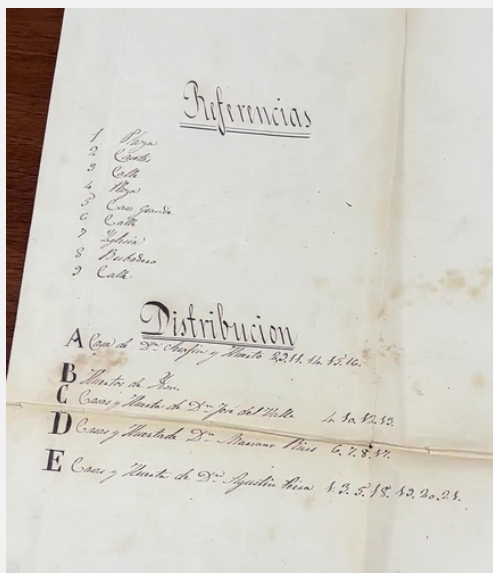 Referencias
1 Plaza
2 Corrales
3 Calle
4 Plaza
5 Casa grande
6 Calle
7 Yglesia
8 Bebedero
9 Calle
Distribucion
A Casa de Dn. Serafin y Huerta 2.9.11.14.15.16.
B Huertos de
C Casas y Huerta de Dn. José del Valle 4.10.12.13.
D Casas y Huerta de Dn. Mariano 6.7.8.17.
E Casas y Huerta de Dn. Agustin 1.3.5.18.19.20.21.